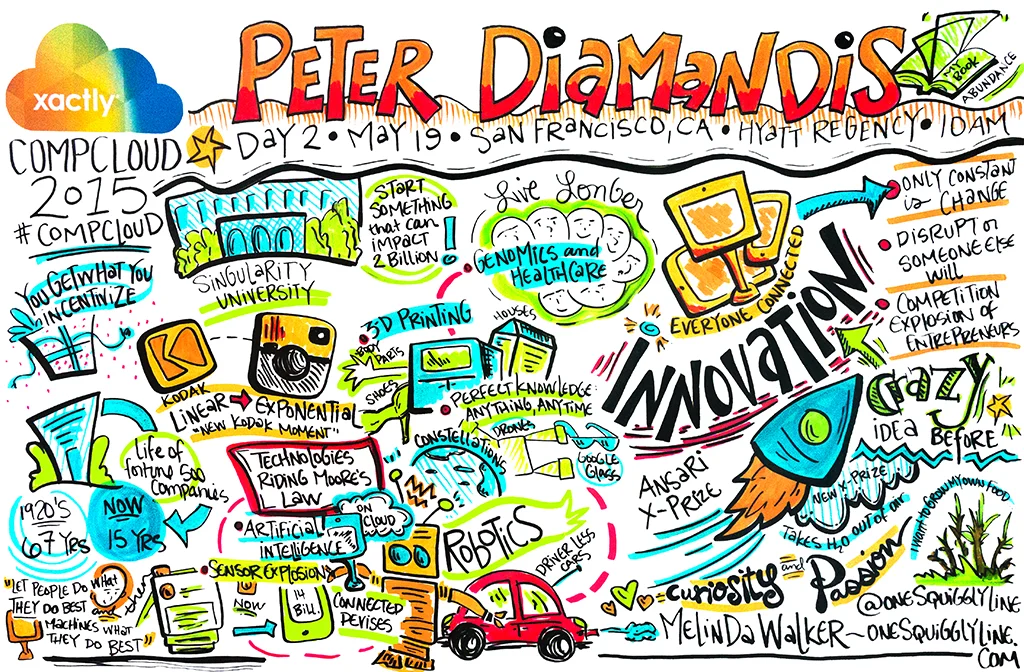 xactly
PETER DIAMANDIS
MY BOOK
ABUNDANCE
DAY 2 • MAY 19 • SAN FRANCISCO, CA • HYATT REGENCY • 10AM
COMPCLOUD
2015
#COMPCLOUD
YOU GET WHAT YOU
INCENTINIZE
SINGULARITY
UNIVERSITY
START
SOMETHING
that can
impact
2 BILLION!
Live Longer
GENOMICS and
HEALTHCARE
EVERYONE CONNECTED
INNOVATION
ONLY CONSTANT
is CHANGE
DISRUPT or
SOMEONE ELSE
WILL
COMPETITION
EXPLOSION OF
ENTREPRENEURS
K
KODAK
LINEAR → EXPONENTIAL
"NEW KODAK MOMENT"
3-D PRINTING
HOUSES
BODY
PARTS
SHOES
PERFECT KNOWLEDGE:
ANYTHING, ANYTIME
CONSTELLATIONS
DRONES
GOOGLE
GLASS
Life of
fortune 500
Companies
1920'S
67 YRS
NOW
15 YRS
TECHNOLOGIES
RIDING MOORE'S
LAW
ON
CLOUD
ARTIFICIAL
INTELLIGENCE
SENSOR EXPLOSION
NOW
14
BILL.
CONNECTED
DEVISES
"LET PEOPLE DO What
THEY DO BEST and
MACHINES WHAT
THEY DO BEST"
ROBOTICS
DRIVER LESS
CARS
CRAZY
IDEA BEFORE
ANSARI
X-PRIZE
NEW X-PRIZE
TAKES H2O OUT OF AIR
I want to GROW MY OWN FOOD
CURIOSITY and Passion
@ONESQUIGGLYLINE
MELINDA WALKER~ONESQUIGGLYLINE.
COM